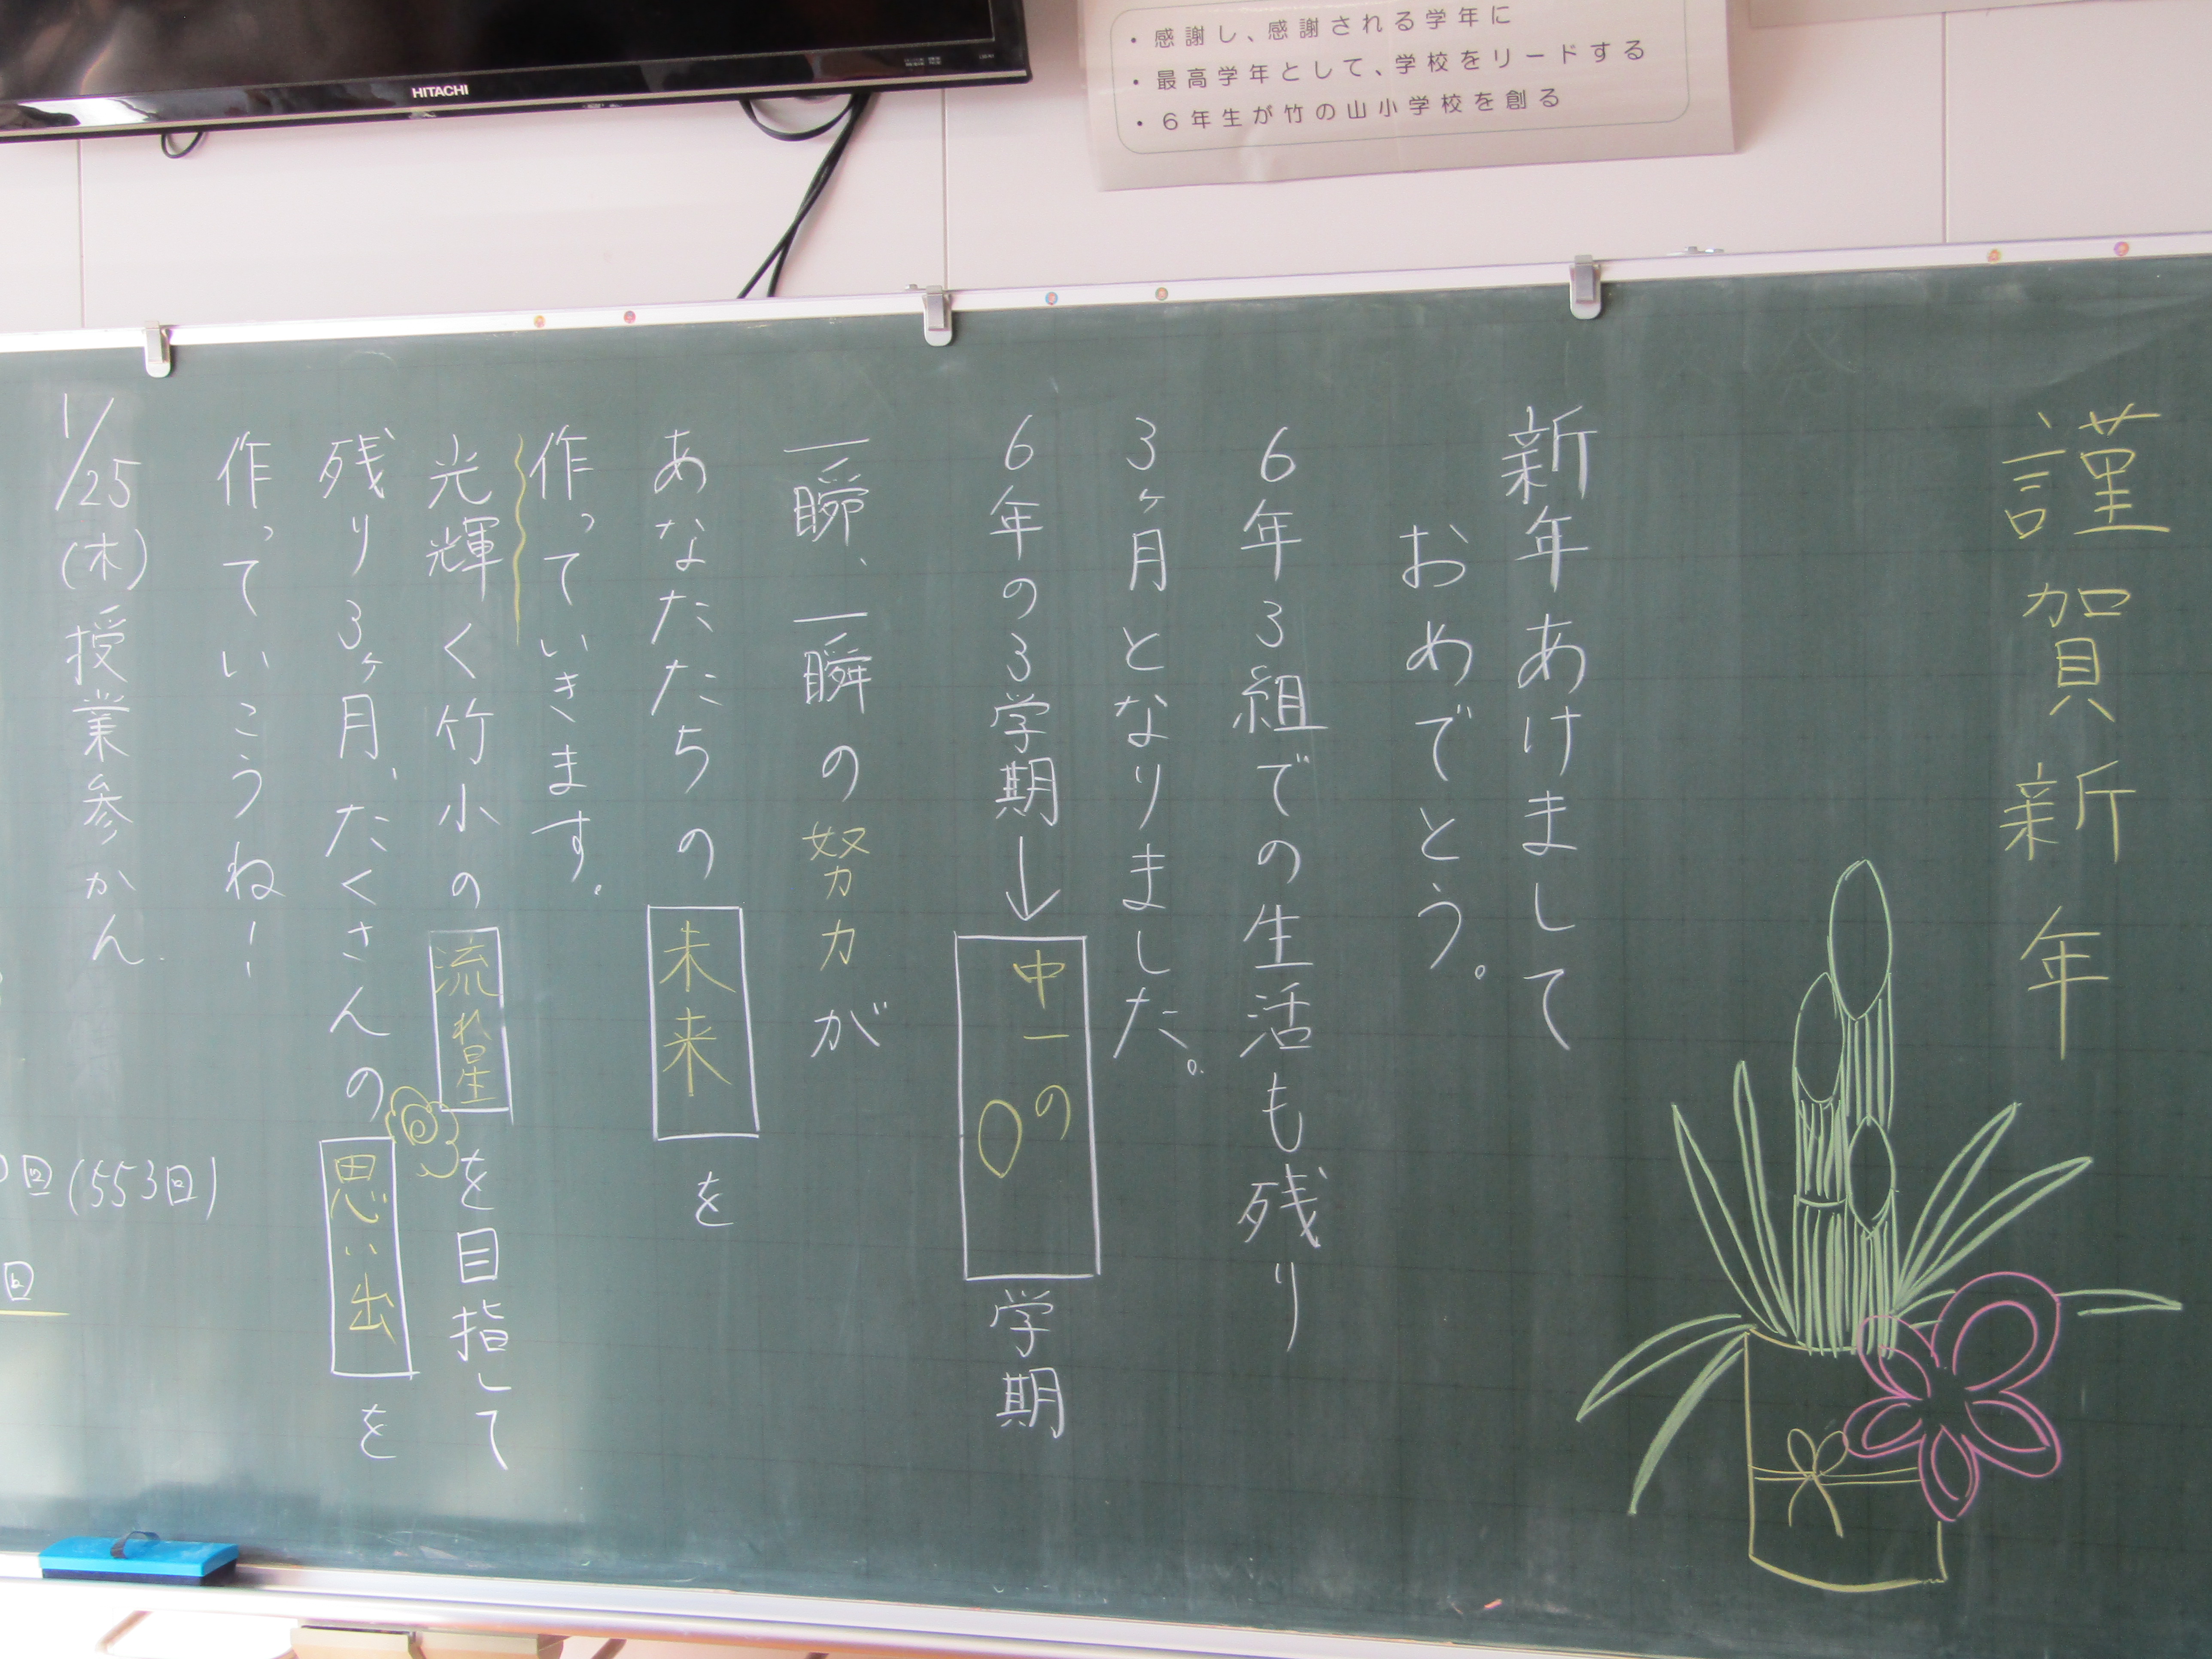 HITACHI
・感謝し、感謝される学年に
・最高学年として、学校をリードする
・6年生が竹の山小学校を創る
謹賀新年
新年あけまして
おめでとう。
6年3組での生活も残り
3ヶ月となりました。
6年の3学期↓中一の0学期
一瞬、一瞬の努力が
あなたたちの未来を
作っていきます。
光輝く竹小の流れ星を目指して
残り3ヶ月、たくさんの思い出を
作っていこうね!
1/25(木)授業参かん.
回(553回)
回